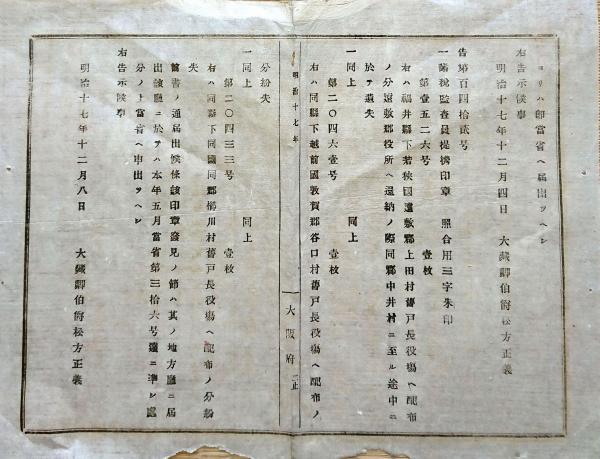 ヨリハ卽當省ヘ屆出ツヘシ
右告示候事
明治十七年十二月四日 大藏卿伯爵松方正義
告第百四拾貳号
一諸税監査員提携印章 照合用三字朱印
第壹五二六号 壹枚
右ハ福井縣下若狹國遠敷郡上田村舊戸長役場ヘ配布
ノ分遠敷郡役所ヘ還納ノ際同郡中井村ニ至ル途中ニ
於テ遺失
一同上 同上
第二〇四六壹号 壹枚
右ハ同縣下越前國敦賀郡谷口村舊戸長役場ヘ配布ノ
明治十七年 大阪府 二止
分紛失
一同上 同上
第二〇四三三号 壹枚
右ハ同縣下同國同郡櫛川村舊戸長役場ヘ配布ノ分紛
失
前書ノ通屆出候條該印章發見ノ節ハ其ノ地方廳ニ屆
出該廳ニ於テハ本年五月當省第三拾六号達ニ準シ處
分ノ上當省ヘ申出ツヘシ
右告示候事
明治十七年十二月八日 大藏卿伯爵松方正義